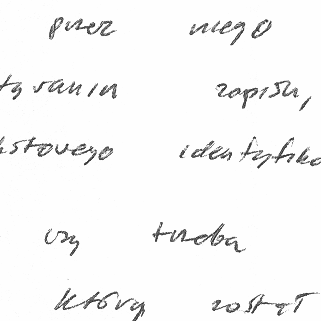 przez niego
tyranin zapisu,
kstowego identyfiko
czy trzeba
który został